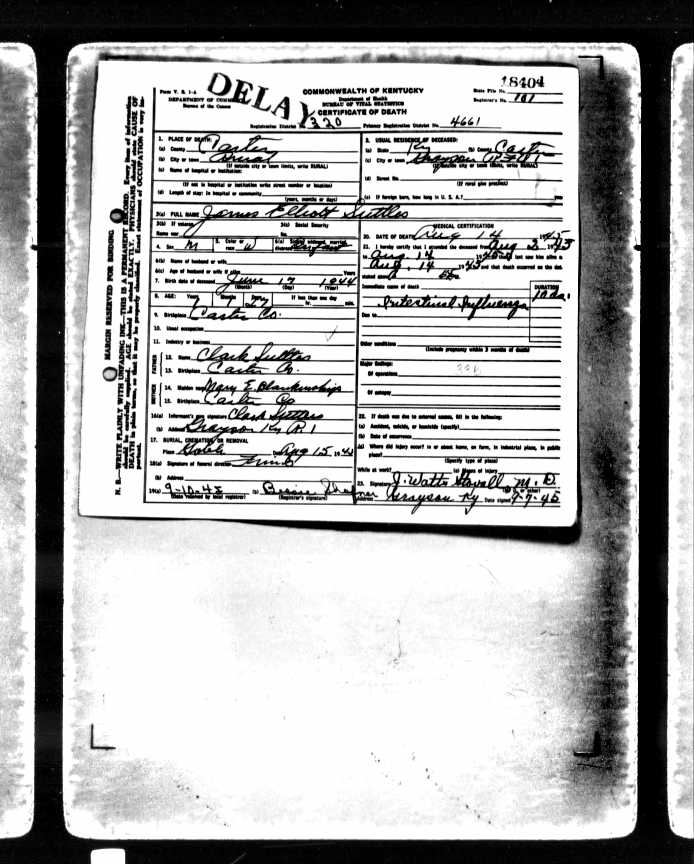 18404
DELAY
Form V. S. 1-A
DEPARTMENT OF COMMERCE
Bureau of the Census
COMMONWEALTH OF KENTUCKY
Department of Health
BUREAU OF VITAL STATISTICS
CERTIFICATE OF DEATH
State File No.
Registrar's No. 101
Registration District No. 320 Primary Registration District No. 4661
MARGIN RESERVED FOR BINDING
N. B.—WRITE PLAINLY WITH UNFADING INK—THIS IS A PERMANENT RECORD. Every item of information
should be carefully supplied. AGE should be stated EXACTLY. PHYSICIANS should state CAUSE OF
DEATH in plain terms, so that it may be properly classified. Exact statement of OCCUPATION is very important.
1. PLACE OF DEATH:
(a) County Carter
(b) City or town Rural
(If outside city or town limits, write RURAL)
(c) Name of hospital or institution:
(If not in hospital or institution write street number or location)
(d) Length of stay: in hospital or community
(years, months or days)
2. USUAL RESIDENCE OF DECEASED:
(a) State Ky (b) County Carter
(c) City or town Grayson
(If outside city or town limits, write RURAL)
(d) Street No.
(If rural give precinct)
(e) If foreign born, how long in U. S. A.?
3(a) FULL NAME James Elliott Suttles
3(b) If veteran, 3(c) Social Security
Name war No.
4. Sex M 5. Color or race W 6(a) Single, widowed, married, divorced Infant
6(b) Name of husband or wife
6(c) Age of husband or wife if alive Years
7. Birth date of deceased June 17 1944
(Month) (Day) (Year)
8. AGE: Years 1 Months 1 Days 27 If less than one day
hr. min.
9. Birthplace Carter Co.
10. Usual occupation
11. Industry or business
FATHER
12. Name Clark Suttles
13. Birthplace Carter Co.
MOTHER
14. Maiden name Mary E. Blankenships
15. Birthplace Carter Co
16(a) Informant's own signature Clark Suttles
(b) Address Grayson Ky R 1
17. BURIAL, CREMATION, OR REMOVAL
Place Date Aug 15
18(a) Signature of funeral director
(b) Address
19(a) 9-10-45 (b)
(Date received by local registrar) (Registrar's signature)
MEDICAL CERTIFICATION
20. DATE OF DEATH Aug 14 1945
21. I hereby certify that I attended the deceased from Aug 2
to Aug. 14 that I last saw him alive on
Aug. 14 and that death occurred on the date
stated above at
Immediate cause of death
DURATION
10 da.
Intestinal Influenza
Due to
Other conditions
(Include pregnancy within 3 months of death)
Major findings:
Of operations
Of autopsy
22. If death was due to external causes, fill in the following:
(a) Accident, suicide, or homicide (specify)
(b) Date of occurrence
(c) Where did injury occur? in or about home, on farm, in industrial place, in public
place?
(Specify type of place)
While at work? (e) Means of injury
23. Signature J. Watts Stovall M. D.
Address Grayson Ky Date signed 9-7-45